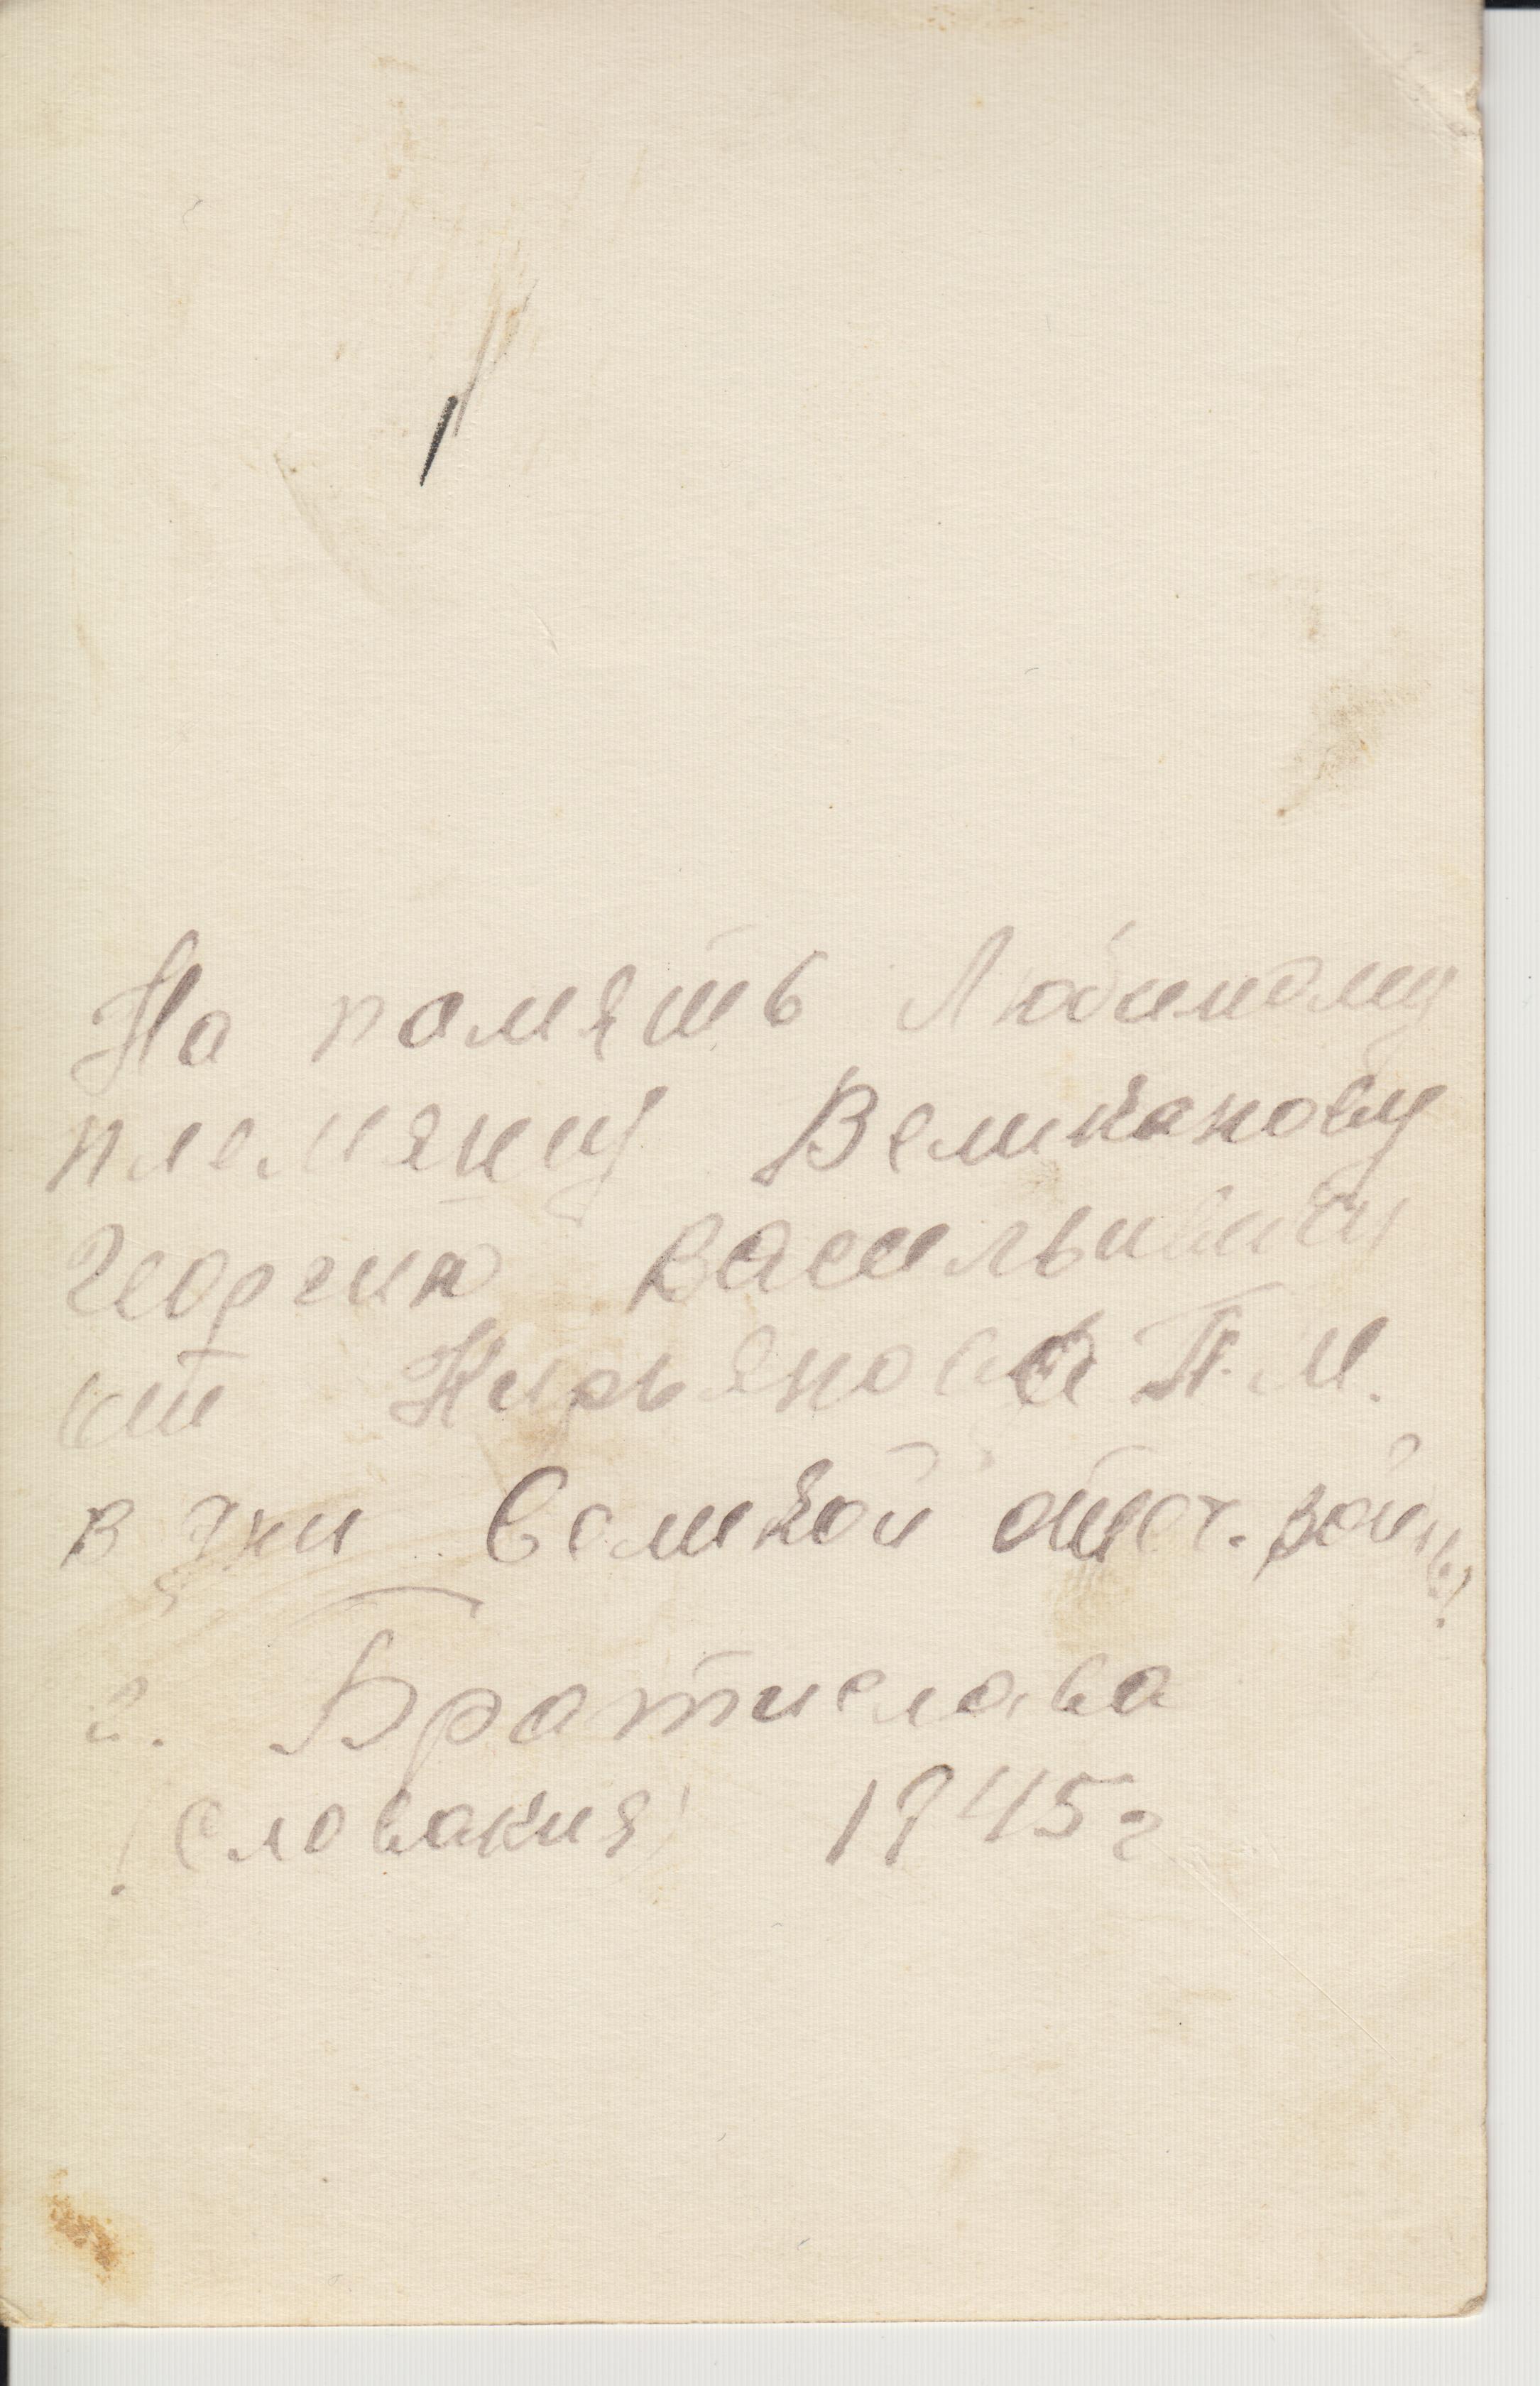 На память Любимому
племяннику Великанову
Георгию Васильивичу
от Кирьянова П. М.
в дни Великой отеч. войны!
г. Братислава
(Словакия) 1945 г